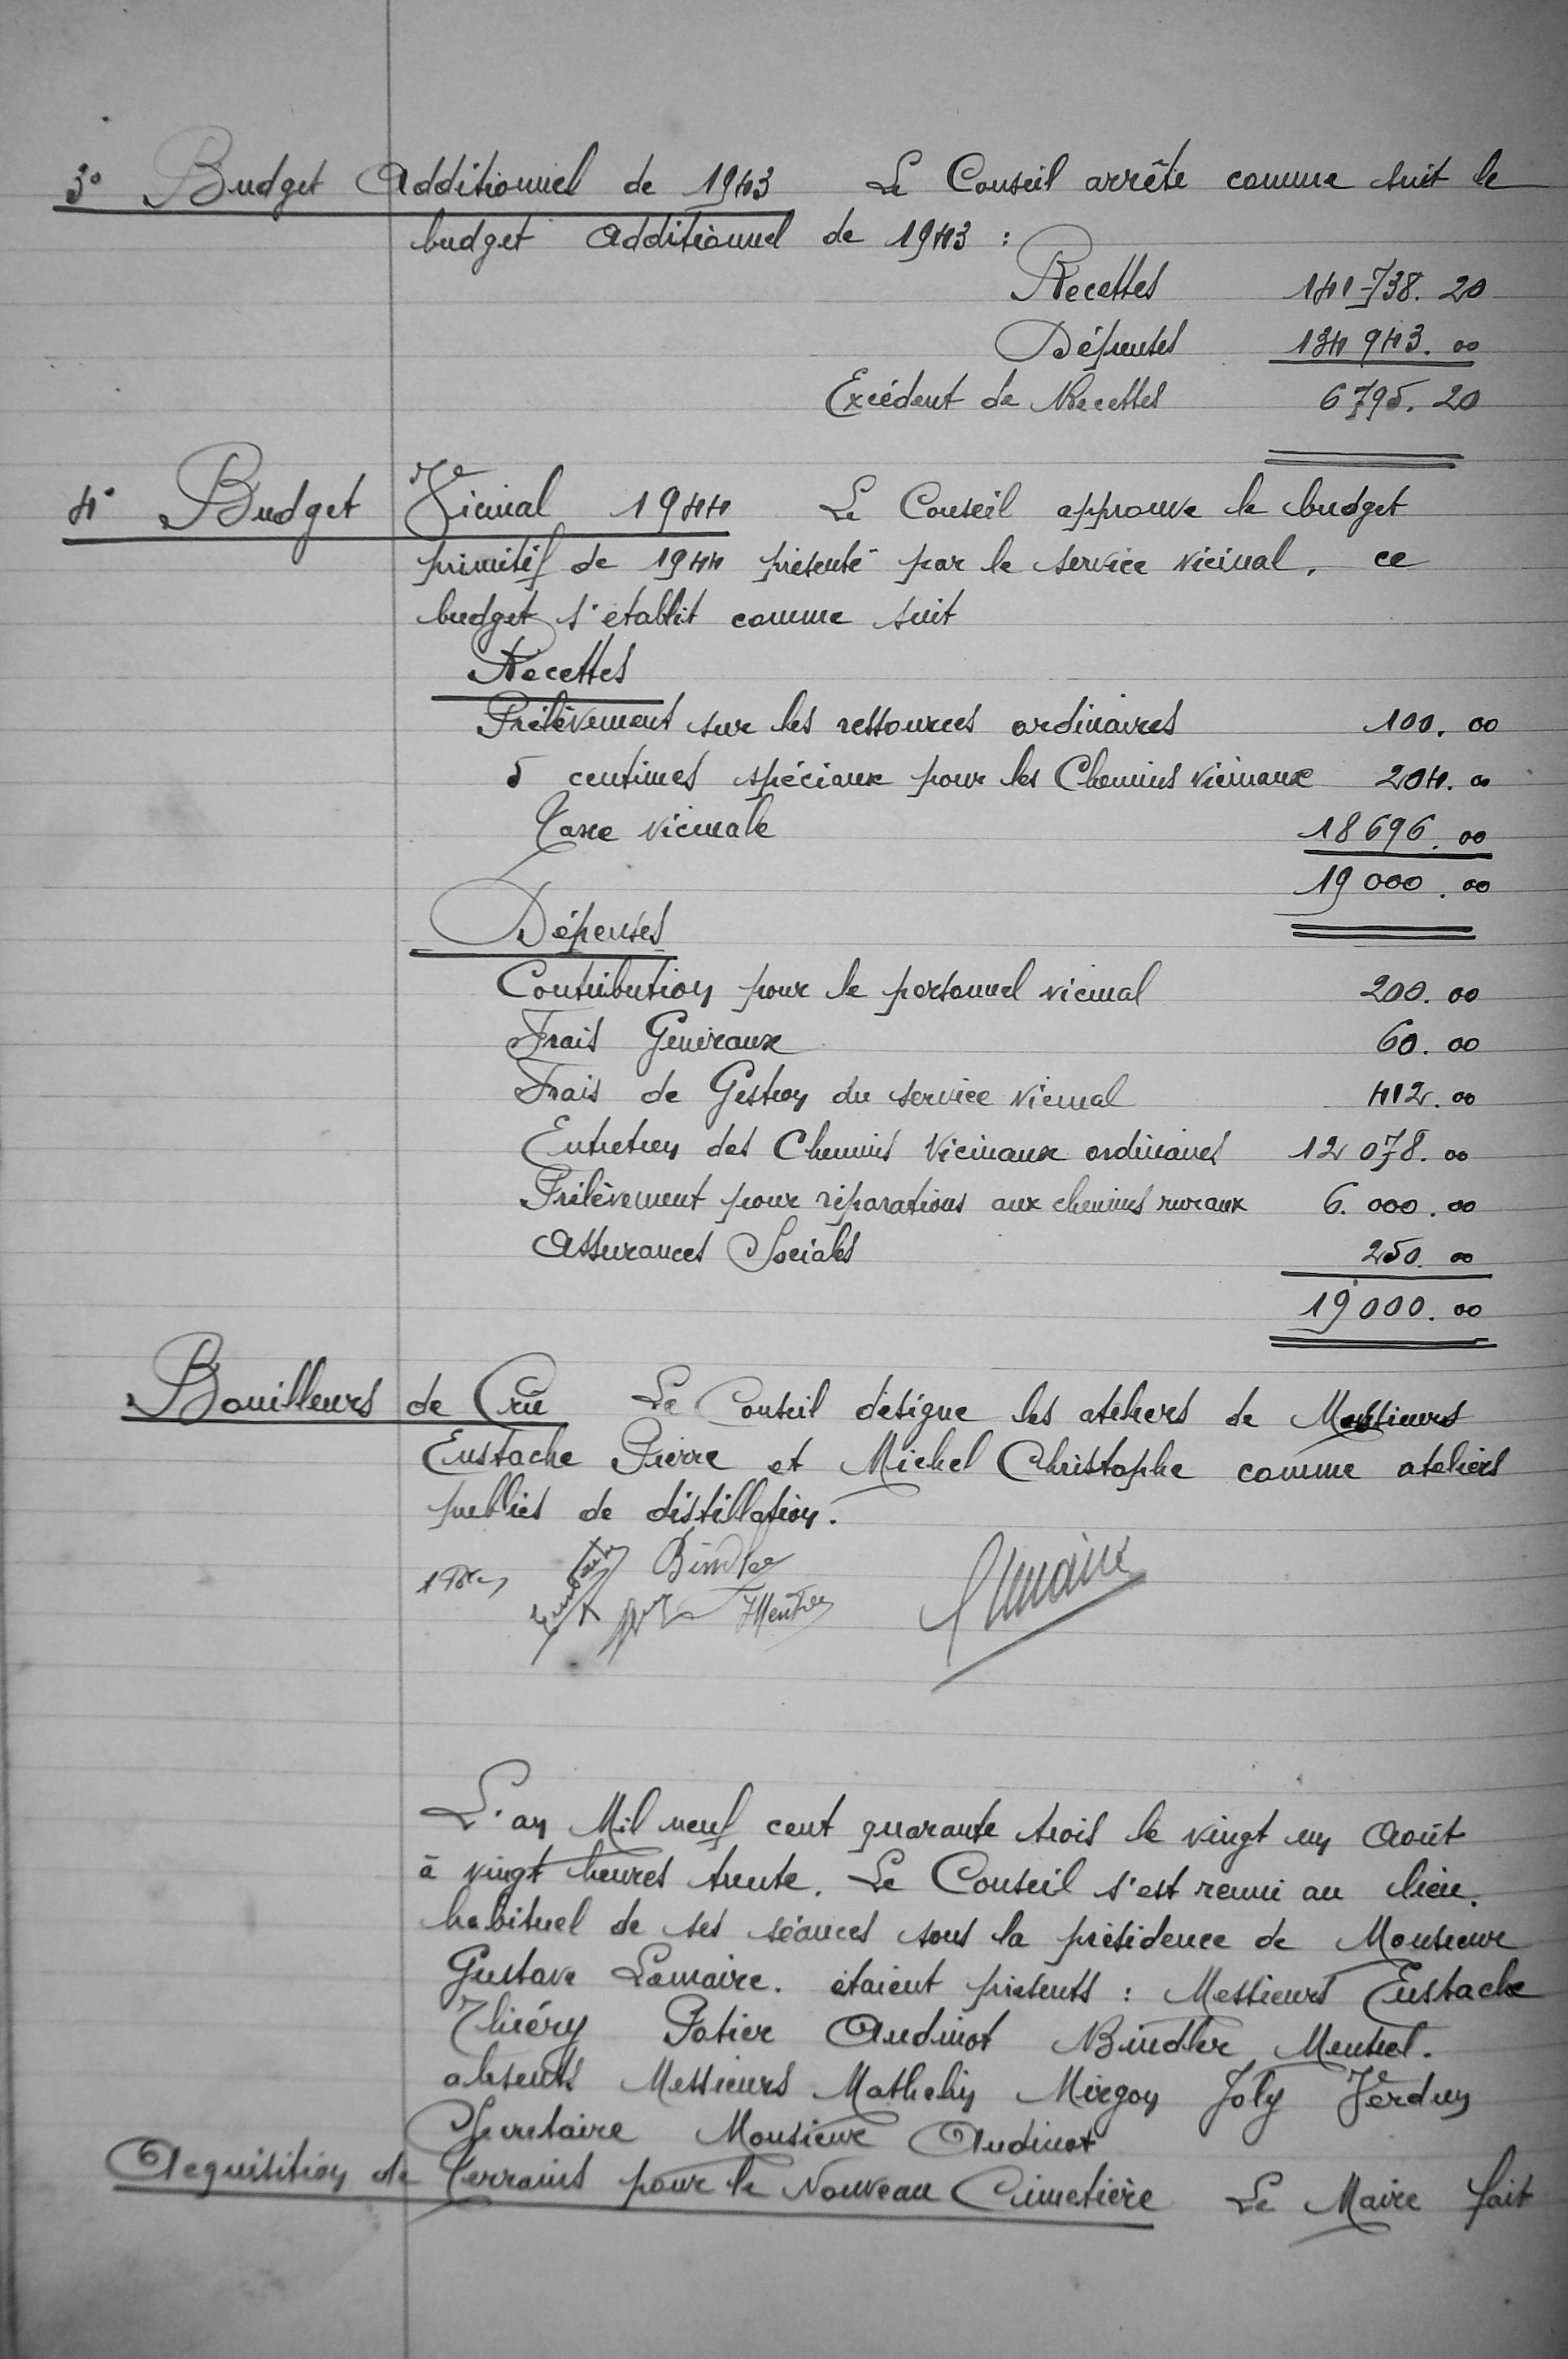 3° Budget Additionnel de 1943 Le Conseil arrête comme suit le
budget additionnel de 1943 :
Recettes 141 738. 20
Dépenses 134 943. 00
Excédent de Recettes 6 795. 20
4° Budget Vicinal 1944 Le Conseil approuve le budget
primitif de 1944 présenté par le service vicinal, ce
budget s'établit comme suit
Recettes
Prélèvement sur les ressources ordinaires 100. 00
5 centimes spéciaux pour les Chemins vicinaux 204. 00
Taxe vicinale 18 696. 00
19 000. 00
Dépenses
Contribution pour le personnel vicinal 200. 00
Frais Généraux 60. 00
Frais de Gestion du service vicinal 412. 00
Entretien des Chemins Vicinaux ordinaires 12 078. 00
Prélèvement pour réparations aux chemins ruraux 6. 000. 00
Assurances Sociales 250. 00
19 000. 00
Bouilleurs de Crû Le Conseil désigne les ateliers de Messieurs
Eustache Pierre et Michel Christophe comme ateliers
publics de distillation.
Bindler
Lemaire
L'an Mil neuf cent quarante trois le vingt un Août
à vingt heures trente. Le Conseil s'est reuni au lieu
habituel de ses séances sous la présidence de Monsieur
Gustave Lemaire. étaient présents : Messieurs Eustache
Thiéry Potier Audinot Bindler Mentrel.
absents Messieurs Mathelin Mirgon Joly Verdun
Secretaire Monsieur Audinot
Acquisition de Terrains pour le Nouveau Cimetière Le Maire fait